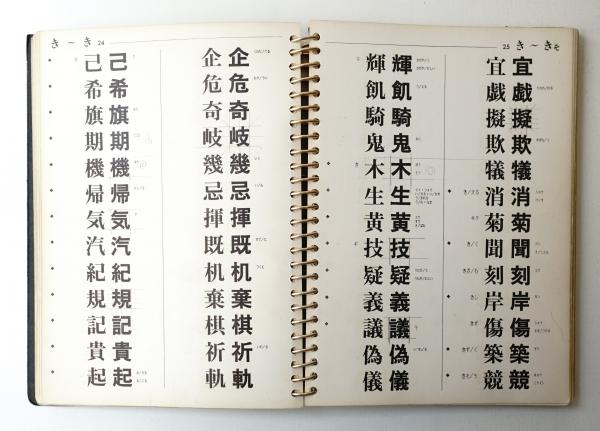 き〜き 24
己 己
希 希
旗 旗
期 期
機 機
帰 帰
気 気
汽 汽
紀 紀
規 規
記 記
貴 貴
起 起
企 企
危 危
奇 奇
岐 岐
幾 幾
忌 忌
揮 揮
既 既
机 机
棄 棄
棋 棋
祈 祈
軌 軌
25 き〜きそ
輝 輝
飢 飢
騎 騎
鬼 鬼
木 木
生 生
黄 黄
技 技
疑 疑
義 義
議 議
偽 偽
儀 儀
宜 宜
戯 戯
擬 擬
欺 欺
犠 犠
消 消
菊 菊
聞 聞
刻 刻
岸 岸
傷 傷
築 築
競 競